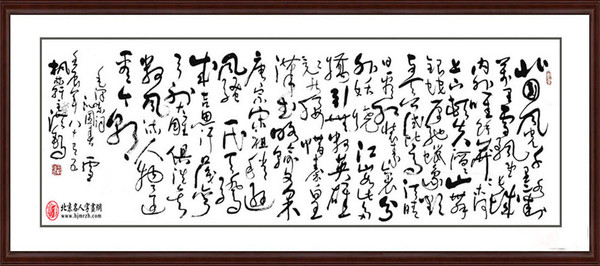 北国风光千里冰封
万里雪飘望长城
内外惟余莽莽大河
上下顿失滔滔山舞
银蛇原驰蜡象欲
与天公试比高须晴
日看红装素裹分
外妖娆江山如此多
娇引无数英雄
竞折腰惜秦皇
汉武略输文采
唐宗宋祖稍逊
风骚一代天骄
成吉思汗只识弯
弓射大雕俱往矣
数风流人物还
看今朝
毛泽东词
沁园春 雪
壬辰年八十五
北京名人字画网
www.hjmrzh.com